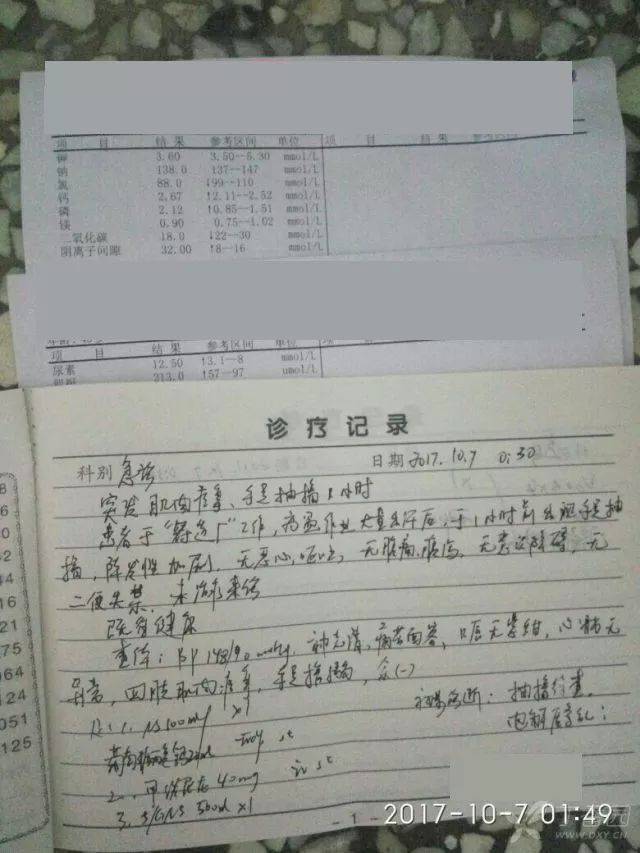 项 目 结 果 参考区间 单位 项 目 结 果 参考区间
钾 3.60 3.50--5.30 mmol/L
钠 138.0 137--147 mmol/L
氯 88.0 ↓99--110 mmol/L
钙 2.67 ↑2.11--2.52 mmol/L
磷 2.12 ↑0.85--1.51 mmol/L
镁 0.90 0.75--1.02 mmol/L
二氧化碳 18.0 ↓22--30 mmol/L
阴离子间隙 32.00 ↑8--16 mmol/L
项 目 结 果 参考区间 单位 项 目
尿素 12.50 ↑3.1--8 mmol/L
213.0 ↑57--97 umol/L
诊疗记录
科别 急诊 日期 2017.10.7 0:30
突发肌肉疼痛、手足抽搐1小时
患者于“铸造厂”工作,高温作业大量出汗后,于1小时前出现手足抽
搐,阵发性加剧,无恶心、呕吐,无腹痛、腹泻,无意识障碍,无
二便失禁,未治疗来诊
既往健康
查体:BP 148/90mmHg,神志清,痛苦面容,口唇无紫绀,心肺无
异常,四肢肌肉疼痛,手足搐搦,余(-)
初步诊断:抽搐待查
1. NS 100ml x1
电解质紊乱?
葡萄糖酸钙 st
2. 40mg st
3. 5%GNS 500ml x1
- 1 -
2017-10-7 01:49
WWW.DXY.CN
8
6
0
52
44
16
21
75
064
124
051
125